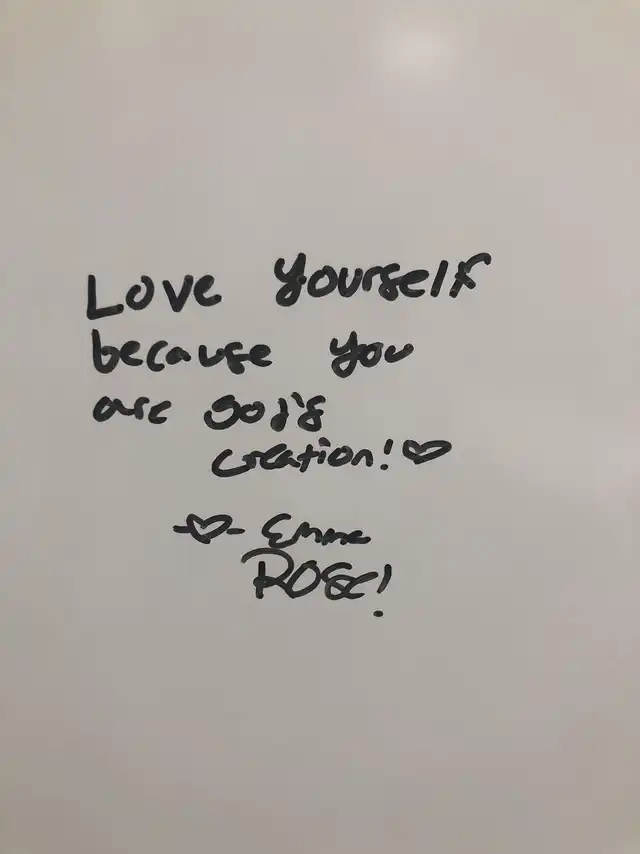 Love yourself
because you
are God's
creation! ♡
-♡- Emma
ROSE!